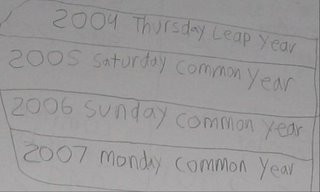 2004 Thursday Leap Year
2005 Saturday Common Year
2006 Sunday Common Year
2007 Monday Common Year